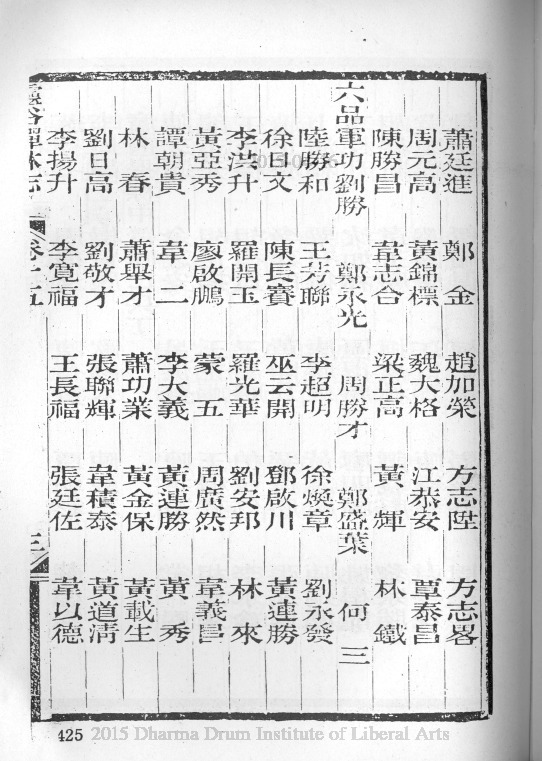 蕭廷進 鄭金 趙加榮 方志陞 方志畧
周元高 黃錦標 魏大格 江恭安 覃泰昌
陳勝昌 韋志合 梁正高 黃輝 林鐵
六品軍功劉勝 鄭永光 周勝才 鄭盛葉 何三
陸勝和 王芳聯 李超明 徐煥章 劉永發
徐日文 陳長賽 巫云開 鄧啟川 黃連勝
李洪升 羅開玉 羅光華 劉安邦 林來
黃亞秀 廖啟鵬 蒙五 周廣然 韋義昌
譚朝貴 韋二 李大義 黃連勝 黃秀
林春 蕭舉才 蕭功業 黃金保 黃載生
劉日高 劉敬才 張聯輝 韋積泰 黃道清
李揚升 李寬福 王長福 張廷佐 韋以德
禪林志 卷十五 三
425 2015 Dharma Drum Institute of Liberal Arts